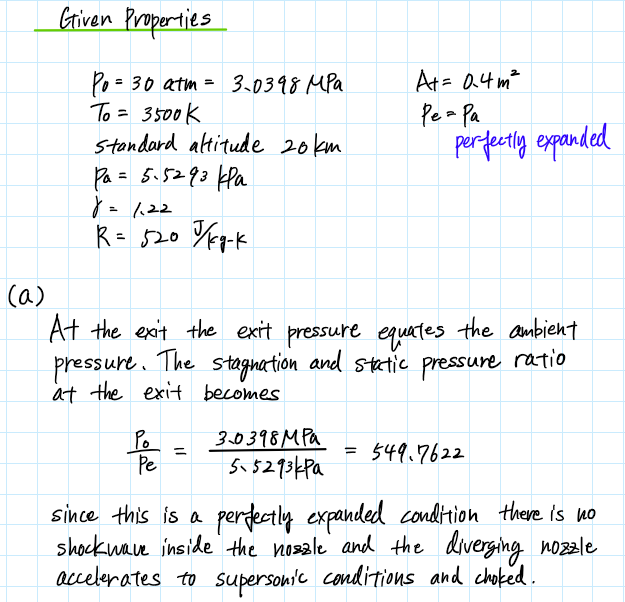 Given Properties
P₀ = 30 atm = 3.0398 MPa
At = 0.4 m²
T₀ = 3500 K
Pe = Pa
standard altitude 20 km
perfectly expanded
Pa = 5.5293 kPa
γ = 1.22
R = 520 J/kg-K
(a)
At the exit the exit pressure equates the ambient
pressure. The stagnation and static pressure ratio
at the exit becomes
P₀/Pe = 3.0398 MPa / 5.5293 kPa = 549.7622
since this is a perfectly expanded condition there is no
shockwave inside the nozzle and the diverging nozzle
accelerates to supersonic conditions and choked.